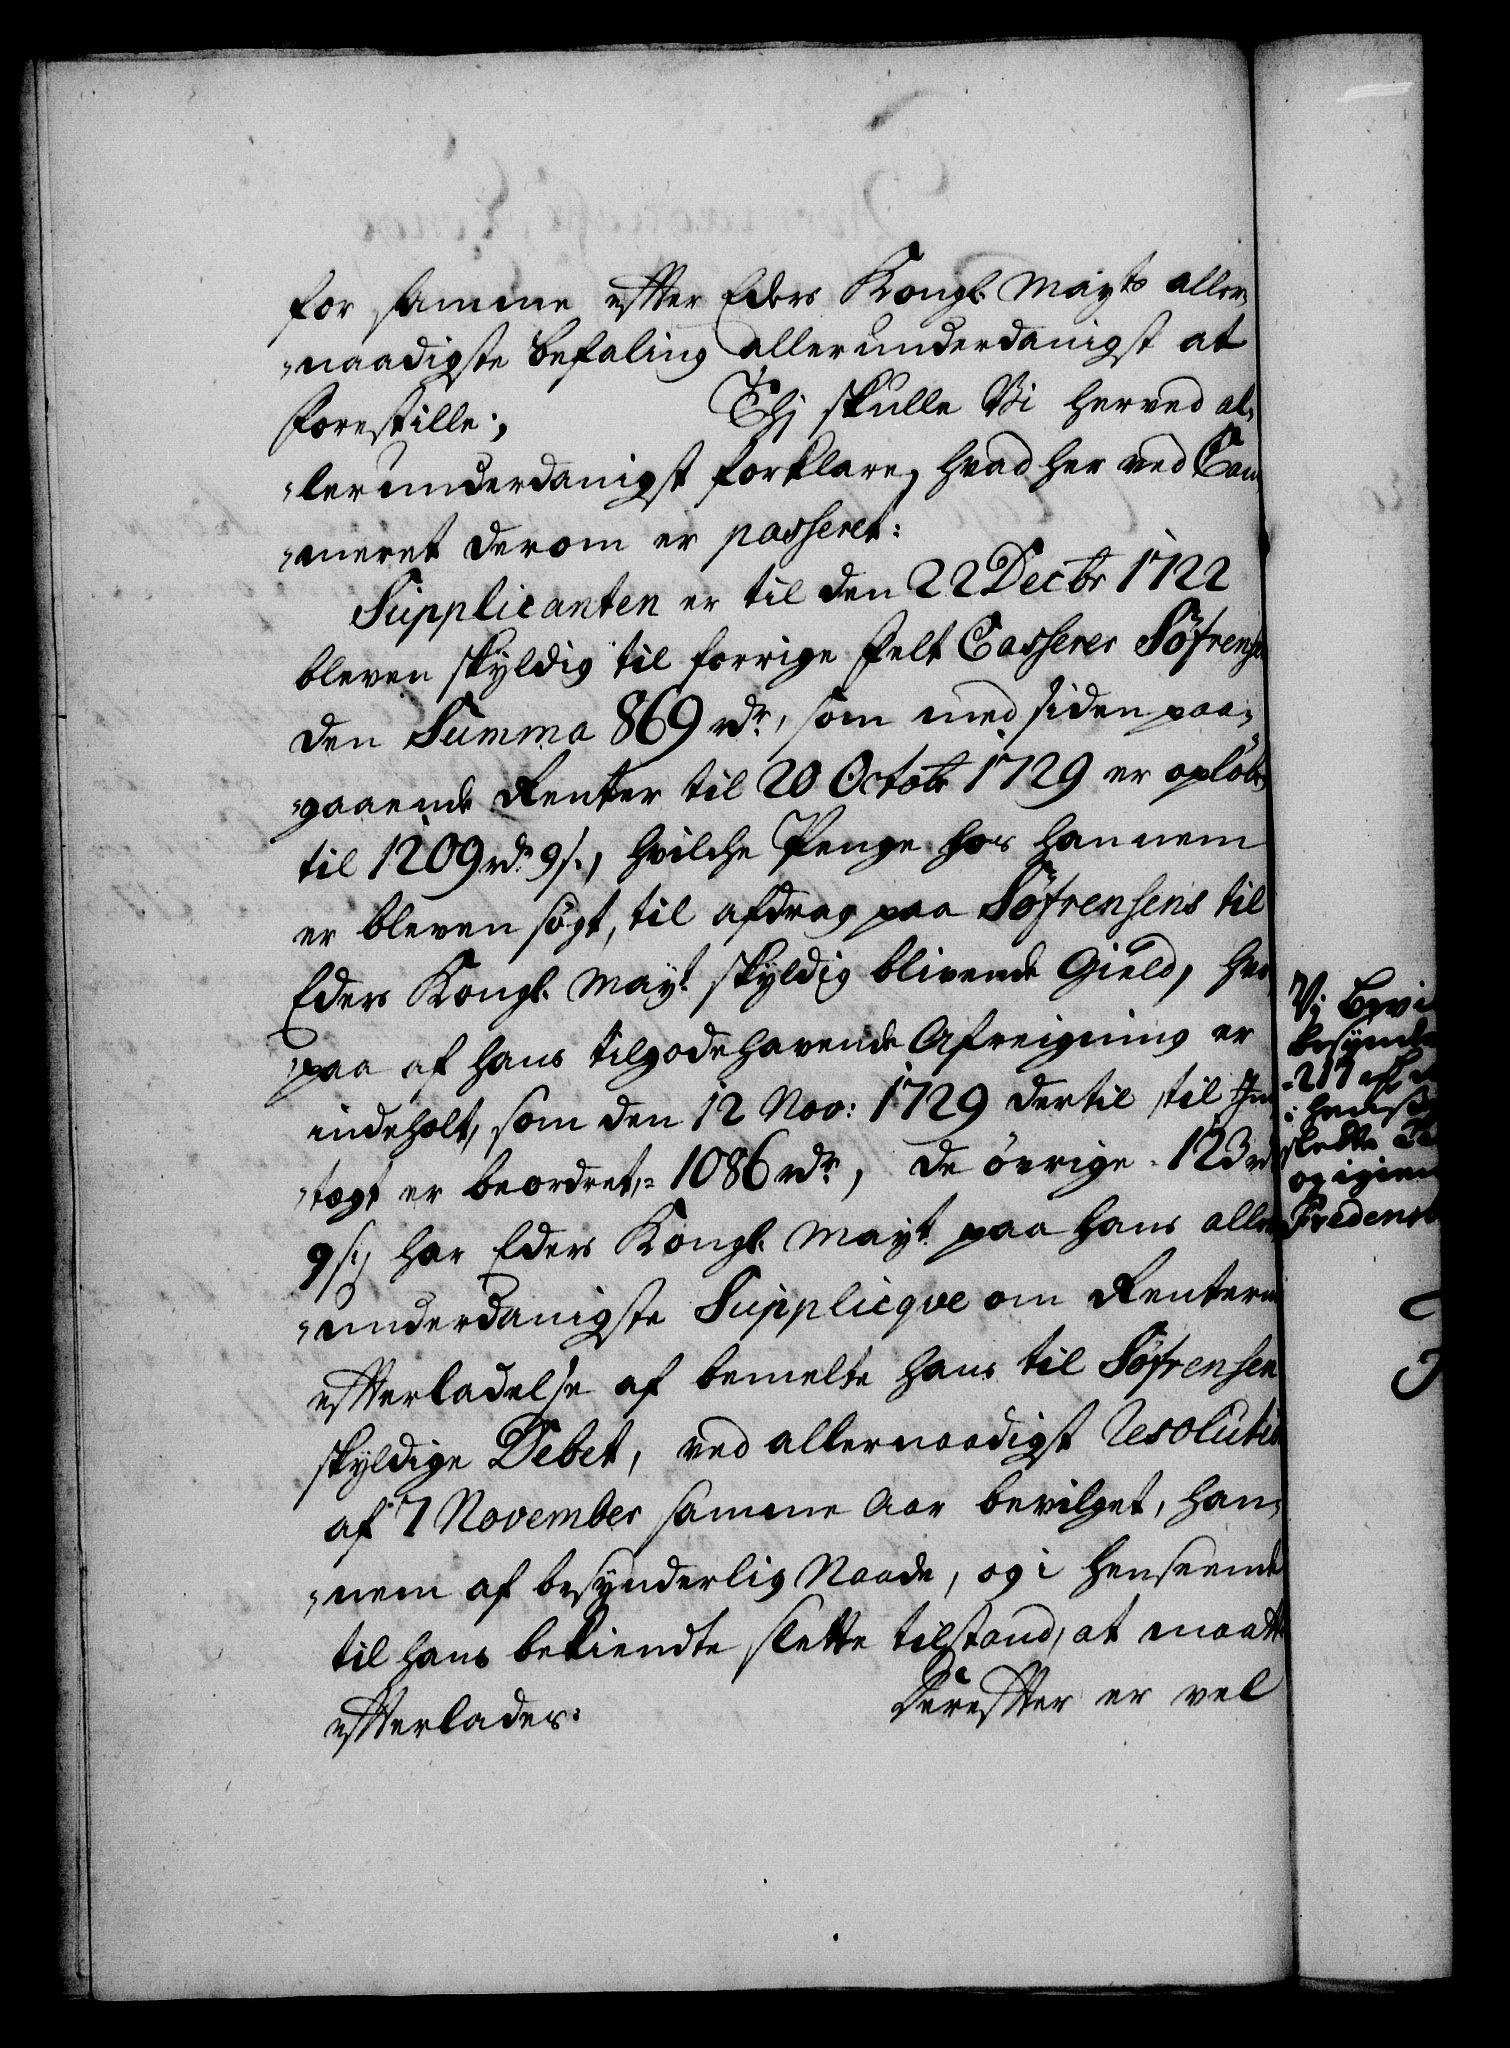 for samme efter Eders Kongl. Mayts aller„
„naadigste befaling allerunderdanigst at
forestille:, Thj skulle Vi herved al„
„lerunderdanigst forklare, hvad her ved Cam
„meret derom er passeret:
Supplicanten er til den 22 Decbr 1722
bleven skyldig til forrige Felt Casserer Söfrensen
den Summa 869 rdr, som med siden paa„
„gaaende Renter til 20 Octobr 1729 er opløbe
til 1209 rdr 9 s., hvilche Penge hos hannem
er bleven søgt, til afdrag paa Söfrensens til
Eders Kongl. Mayt. skyldig blivende Gield, hvor
paa af hans tilgodehavende Afreigning er
indeholt, som den 12 Nov: 1729 dertil til Ind
„tægt er beordret, 1086 rdr, de øvrige 123 rd
9 s., har Eders Kongl. Mayt. paa hans aller
„underdanigste Supplicqve om Renternes
efterladelse af bemelte hans til Söfrensen
skyldige Debet, ved allernaadigst Resolution
af 7 November samme Aar bevilget, han„
„nem af besynderlig Naade, og i henseende
til hans bekiendte slette tilstand, at maatte
efterlades: Derefter er vel
Vj bevi
besynde
217
i hens
slette
og igien
Fredensb